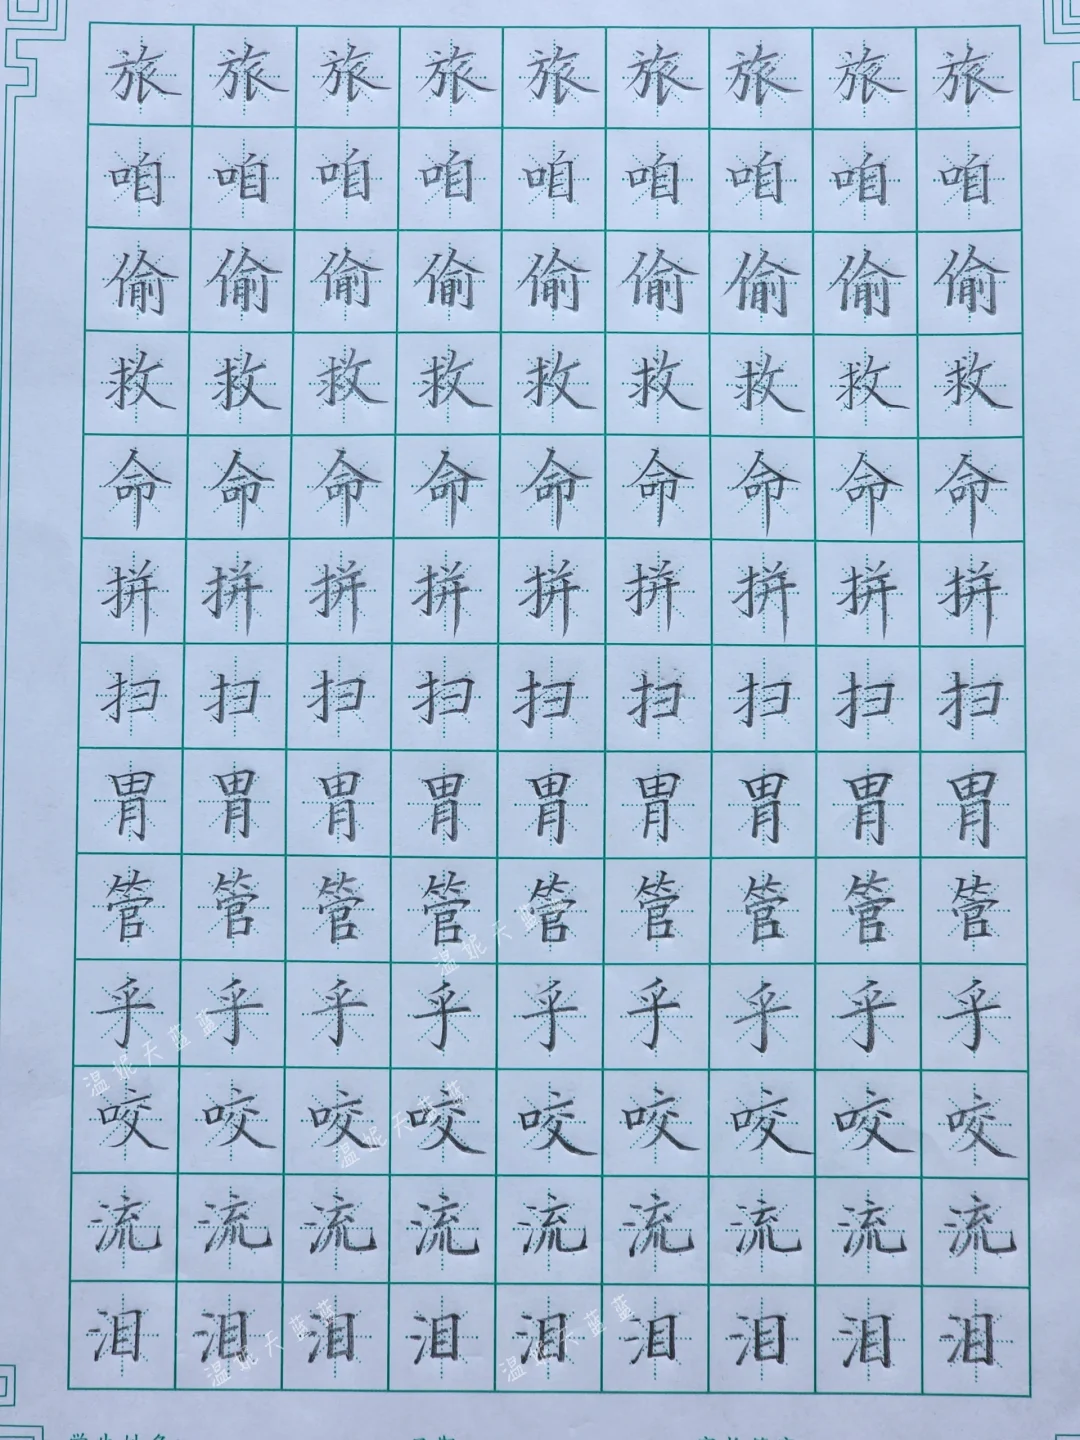 旅旅旅旅旅旅旅旅旅
咱咱咱咱咱咱咱咱咱
偷偷偷偷偷偷偷偷偷
救救救救救救救救救
命命命命命命命命命
拼拼拼拼拼拼拼拼拼
扫扫扫扫扫扫扫扫扫
胃胃胃胃胃胃胃胃胃
管管管管管管管管管
温妮天蓝
乎乎乎乎乎乎乎乎乎
温妮天蓝蓝
咬咬咬咬咬咬咬咬咬
温妮天蓝蓝
流流流流流流流流流
泪泪泪泪泪泪泪泪泪
温妮天蓝蓝
温妮天蓝蓝